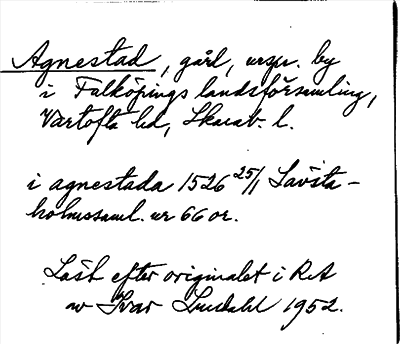 Agnestad, gård, urspr. by
i Falköpings landsförsamling,
Vartofta hd, Skarab. l.
i agnestada 1526 25/1 Säfsta-
holmssaml. nr 66 or.
Läst efter originalet i RA
av Ivar Lundahl 1952.